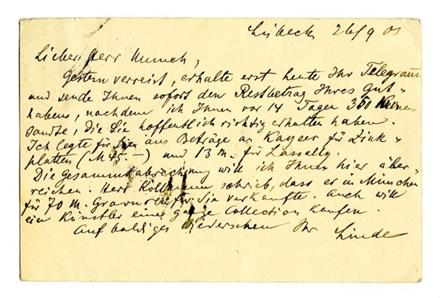 Lübeck 26/9 03
Lieber Herr Munch,
Gestern verreist, erhalte erst heute Ihr Telegramm
und sende Ihnen sofort den Restbetrag Ihres Gut=
habens, nachdem ich Ihnen vor 14 Tagen 300 Kronen
sandte, die Sie hoffentlich richtig erhalten haben.
Ich legte für Sie aus Beträge an Kayser für Zink=
platten (M 45.–) und 13 M. für Lassally.
Die Gesammtabrechnung will ich Ihnen hier über=
reichen. Herr schrieb, dass er in München
für 70 M. für Sie verkaufte. Auch will
ein Künstler eine ganze Collection kaufen.
Auf baldiges Wiedersehen Ihr Linde